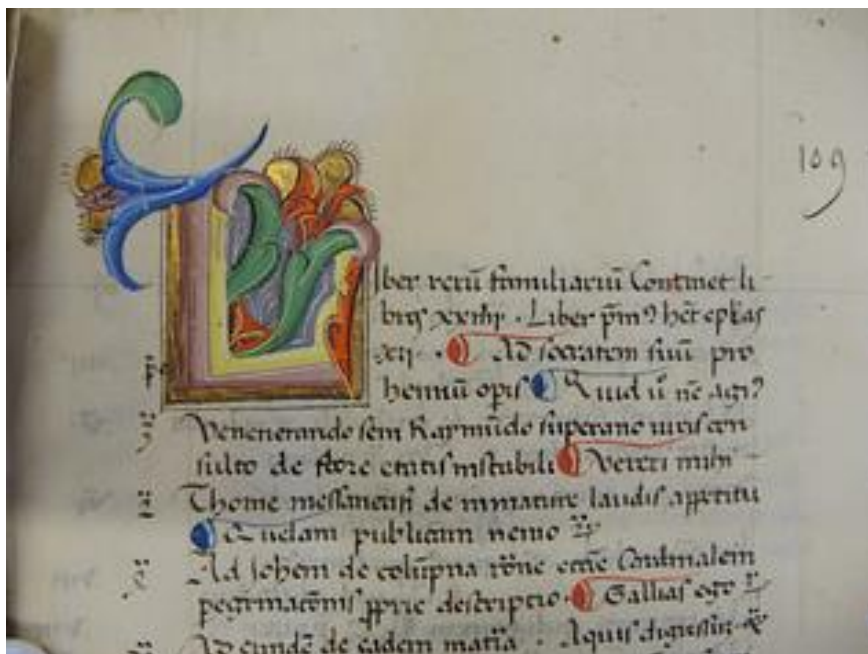 109
Liber rerũ familiariũ Continet li-
bros xxiiij . Liber p̃m⁹ hẽt ep̃las
xij . Ad socratem suũ pro
hemiũ opis Quid ṽ nẽ agi?
Venenerando seni Raymũdo superano iuris con
sulto de flore etatis instabili Vereri mihi
Thome messanensi de immature laudis appetitu
Quelam publicam nemo
Ad Iohem de colũpna rõne ecc̃e Cardinalem
pegrinacõnis pprie descriptio Gallias ego
Ad eundẽ de eadem matĩa . Aquis digressus